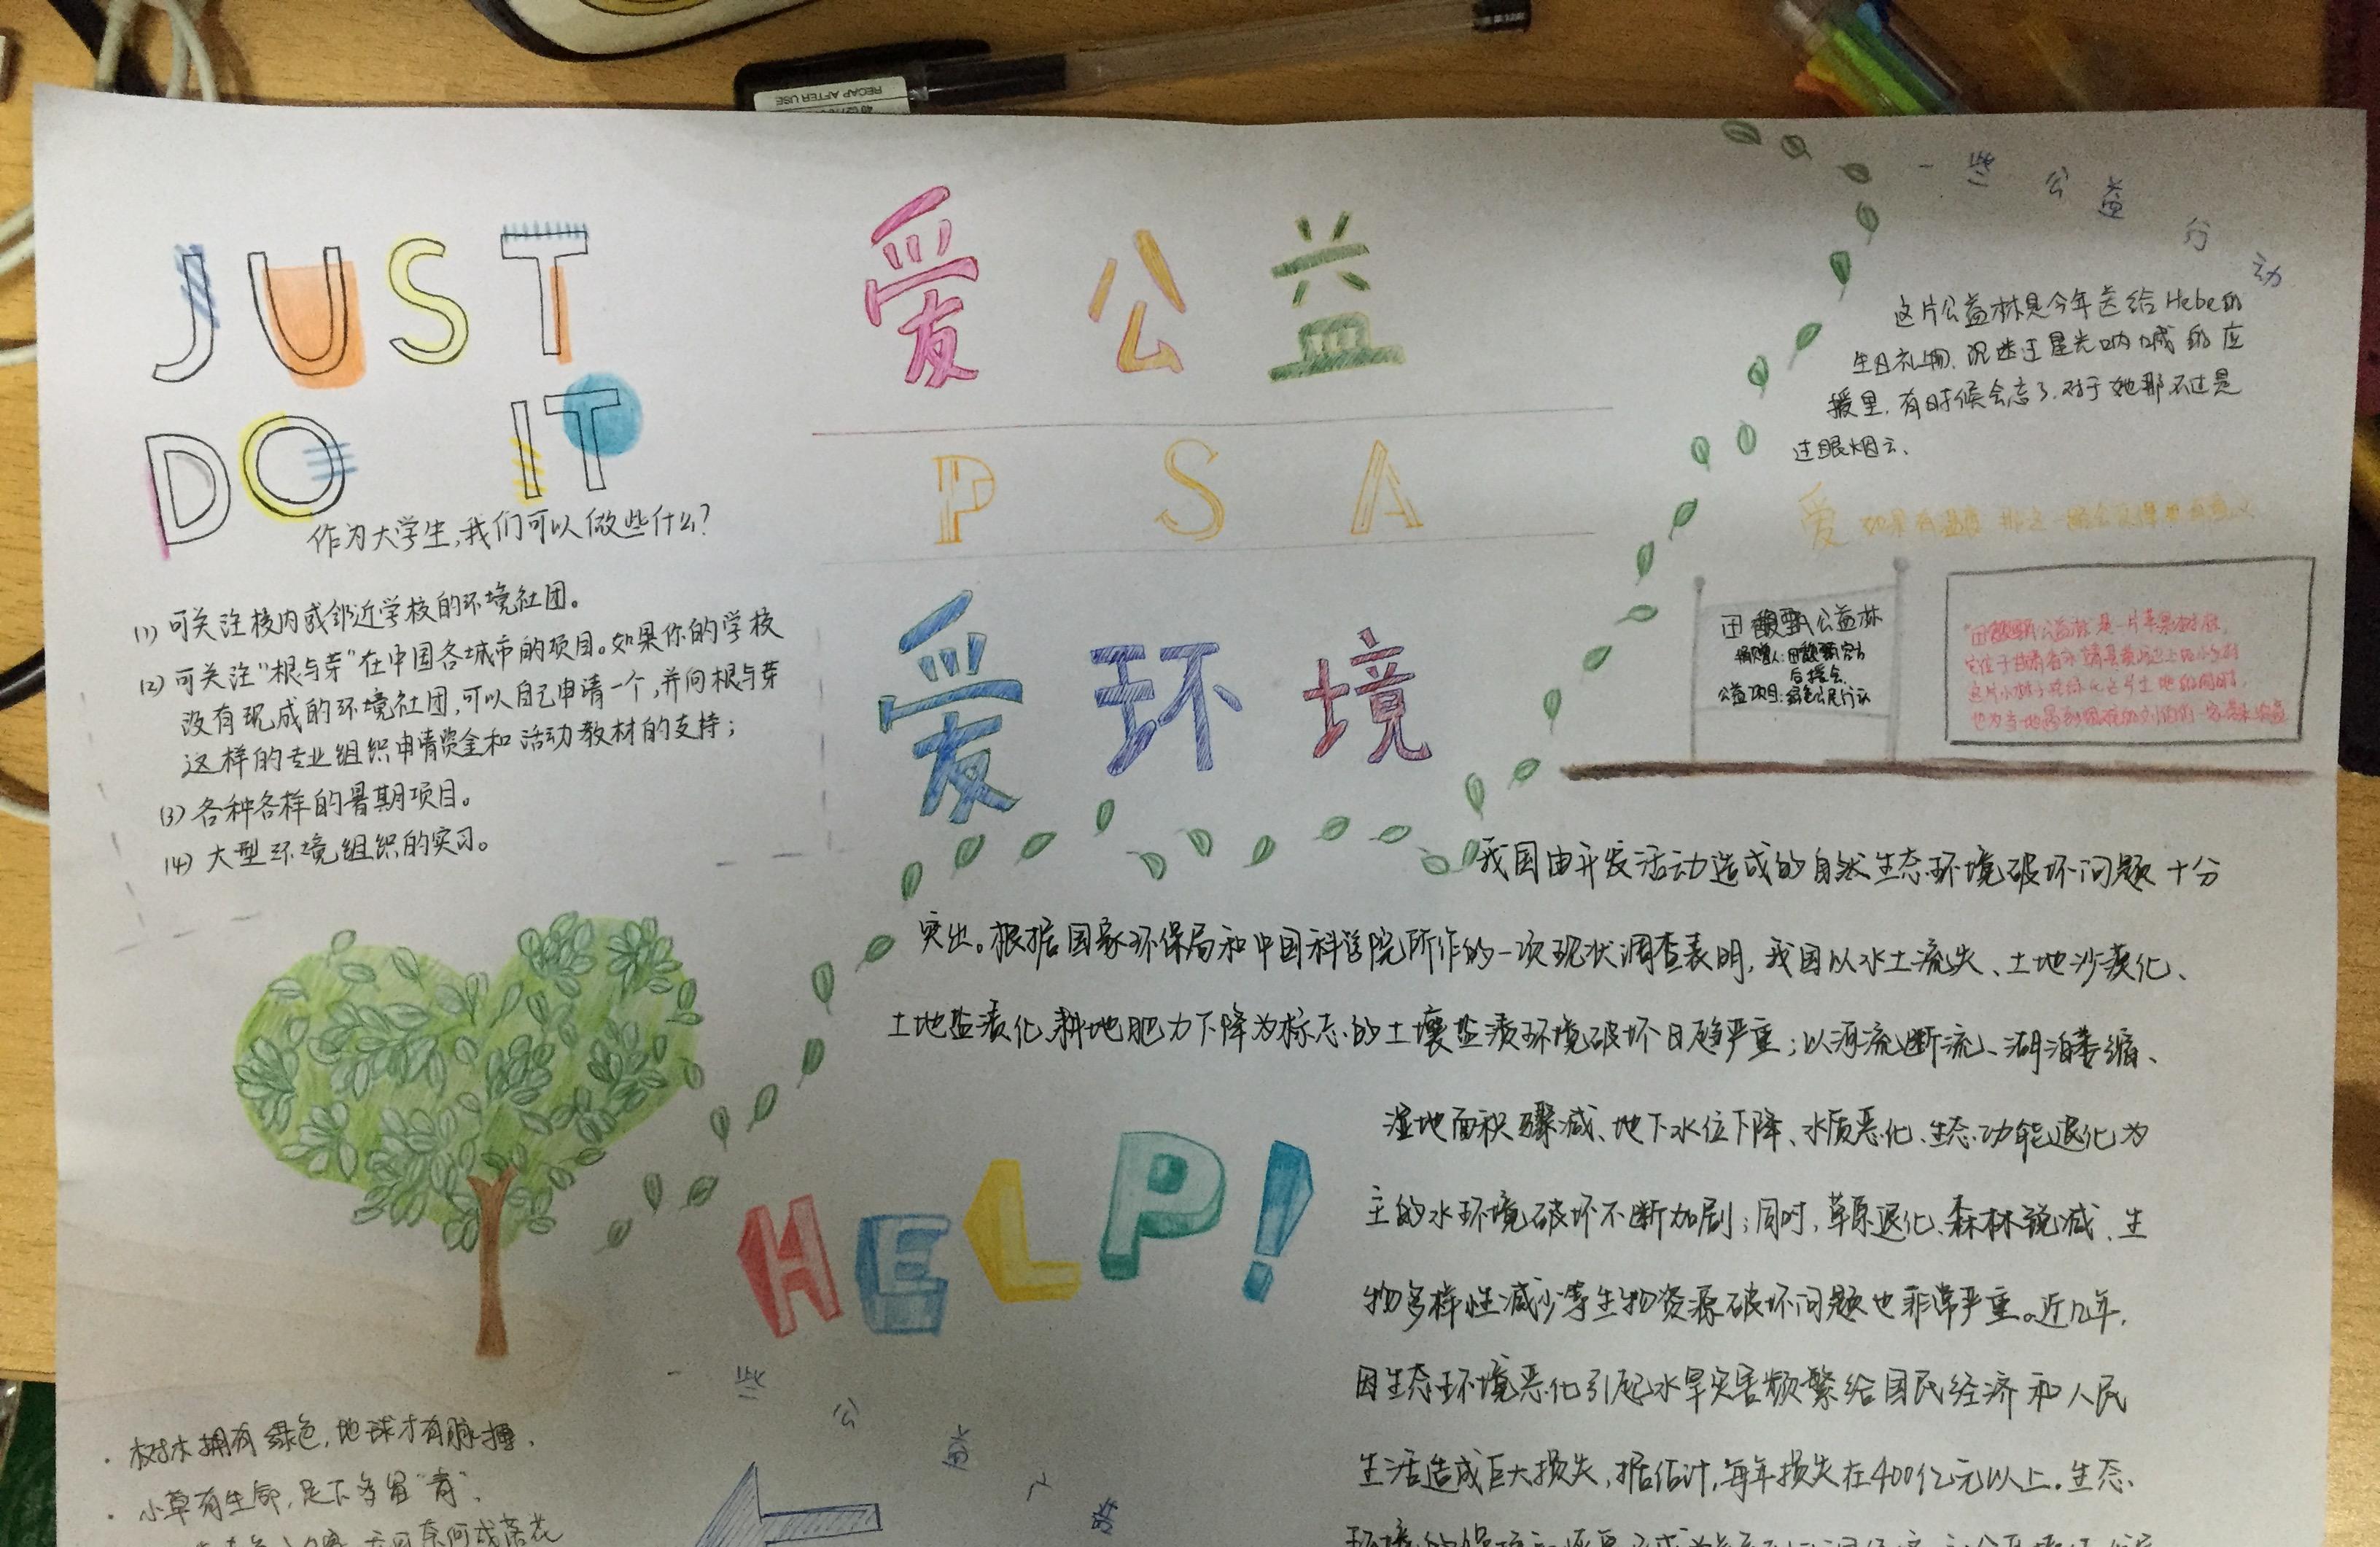 RECAP AFTER USE
JUST
DO IT
作为大学生,我们可以做些什么?
(1) 可关注校内或邻近学校的环境社团。
(2) 可关注"根与芽"在中国各城市的项目。如果你的学校
没有现成的环境社团,可以自己申请一个,并向根与芽
这样的专业组织申请资金和活动教材的支持;
(3) 各种各样的暑期项目。
(4) 大型环境组织的实习。
爱公益
PSA
爱环境
一些公益行动
这片公益林是今年送给Hebe的
生日礼物,沉迷于星光呐喊的应
援里,有时候会忘了,对于她那不过是
过眼烟云、
爱 如果有温度 那这一
田馥甄公益林
捐赠人:田馥甄官方
后援会
公益项目:绿色公民行动
"田馥甄公益林"是一片苹果树林,
这片小林子在绿化这片土地的同时,
我国由开发活动造成的自然生态环境破坏问题十分
突出。根据国家环保局和中国科学院所作的一次现状调查表明,我国以水土流失、土地沙漠化、
土地盐渍化、耕地肥力下降为标志的土壤盐渍环境破坏日趋严重;以河流断流、湖泊萎缩、
湿地面积骤减、地下水位下降、水质恶化、生态功能退化为
主的水环境破坏不断加剧;同时,草原退化、森林锐减、生
物多样性减少等生物资源破坏问题也非常严重。近几年,
因生态环境恶化引起水旱灾害频繁给国民经济和人民
生活造成巨大损失,据估计,每年损失在400亿元以上。生态
HELP!
一些公益广告
·树木拥有绿色,地球才有脉搏、
·小草有生命,足下多留"青"、